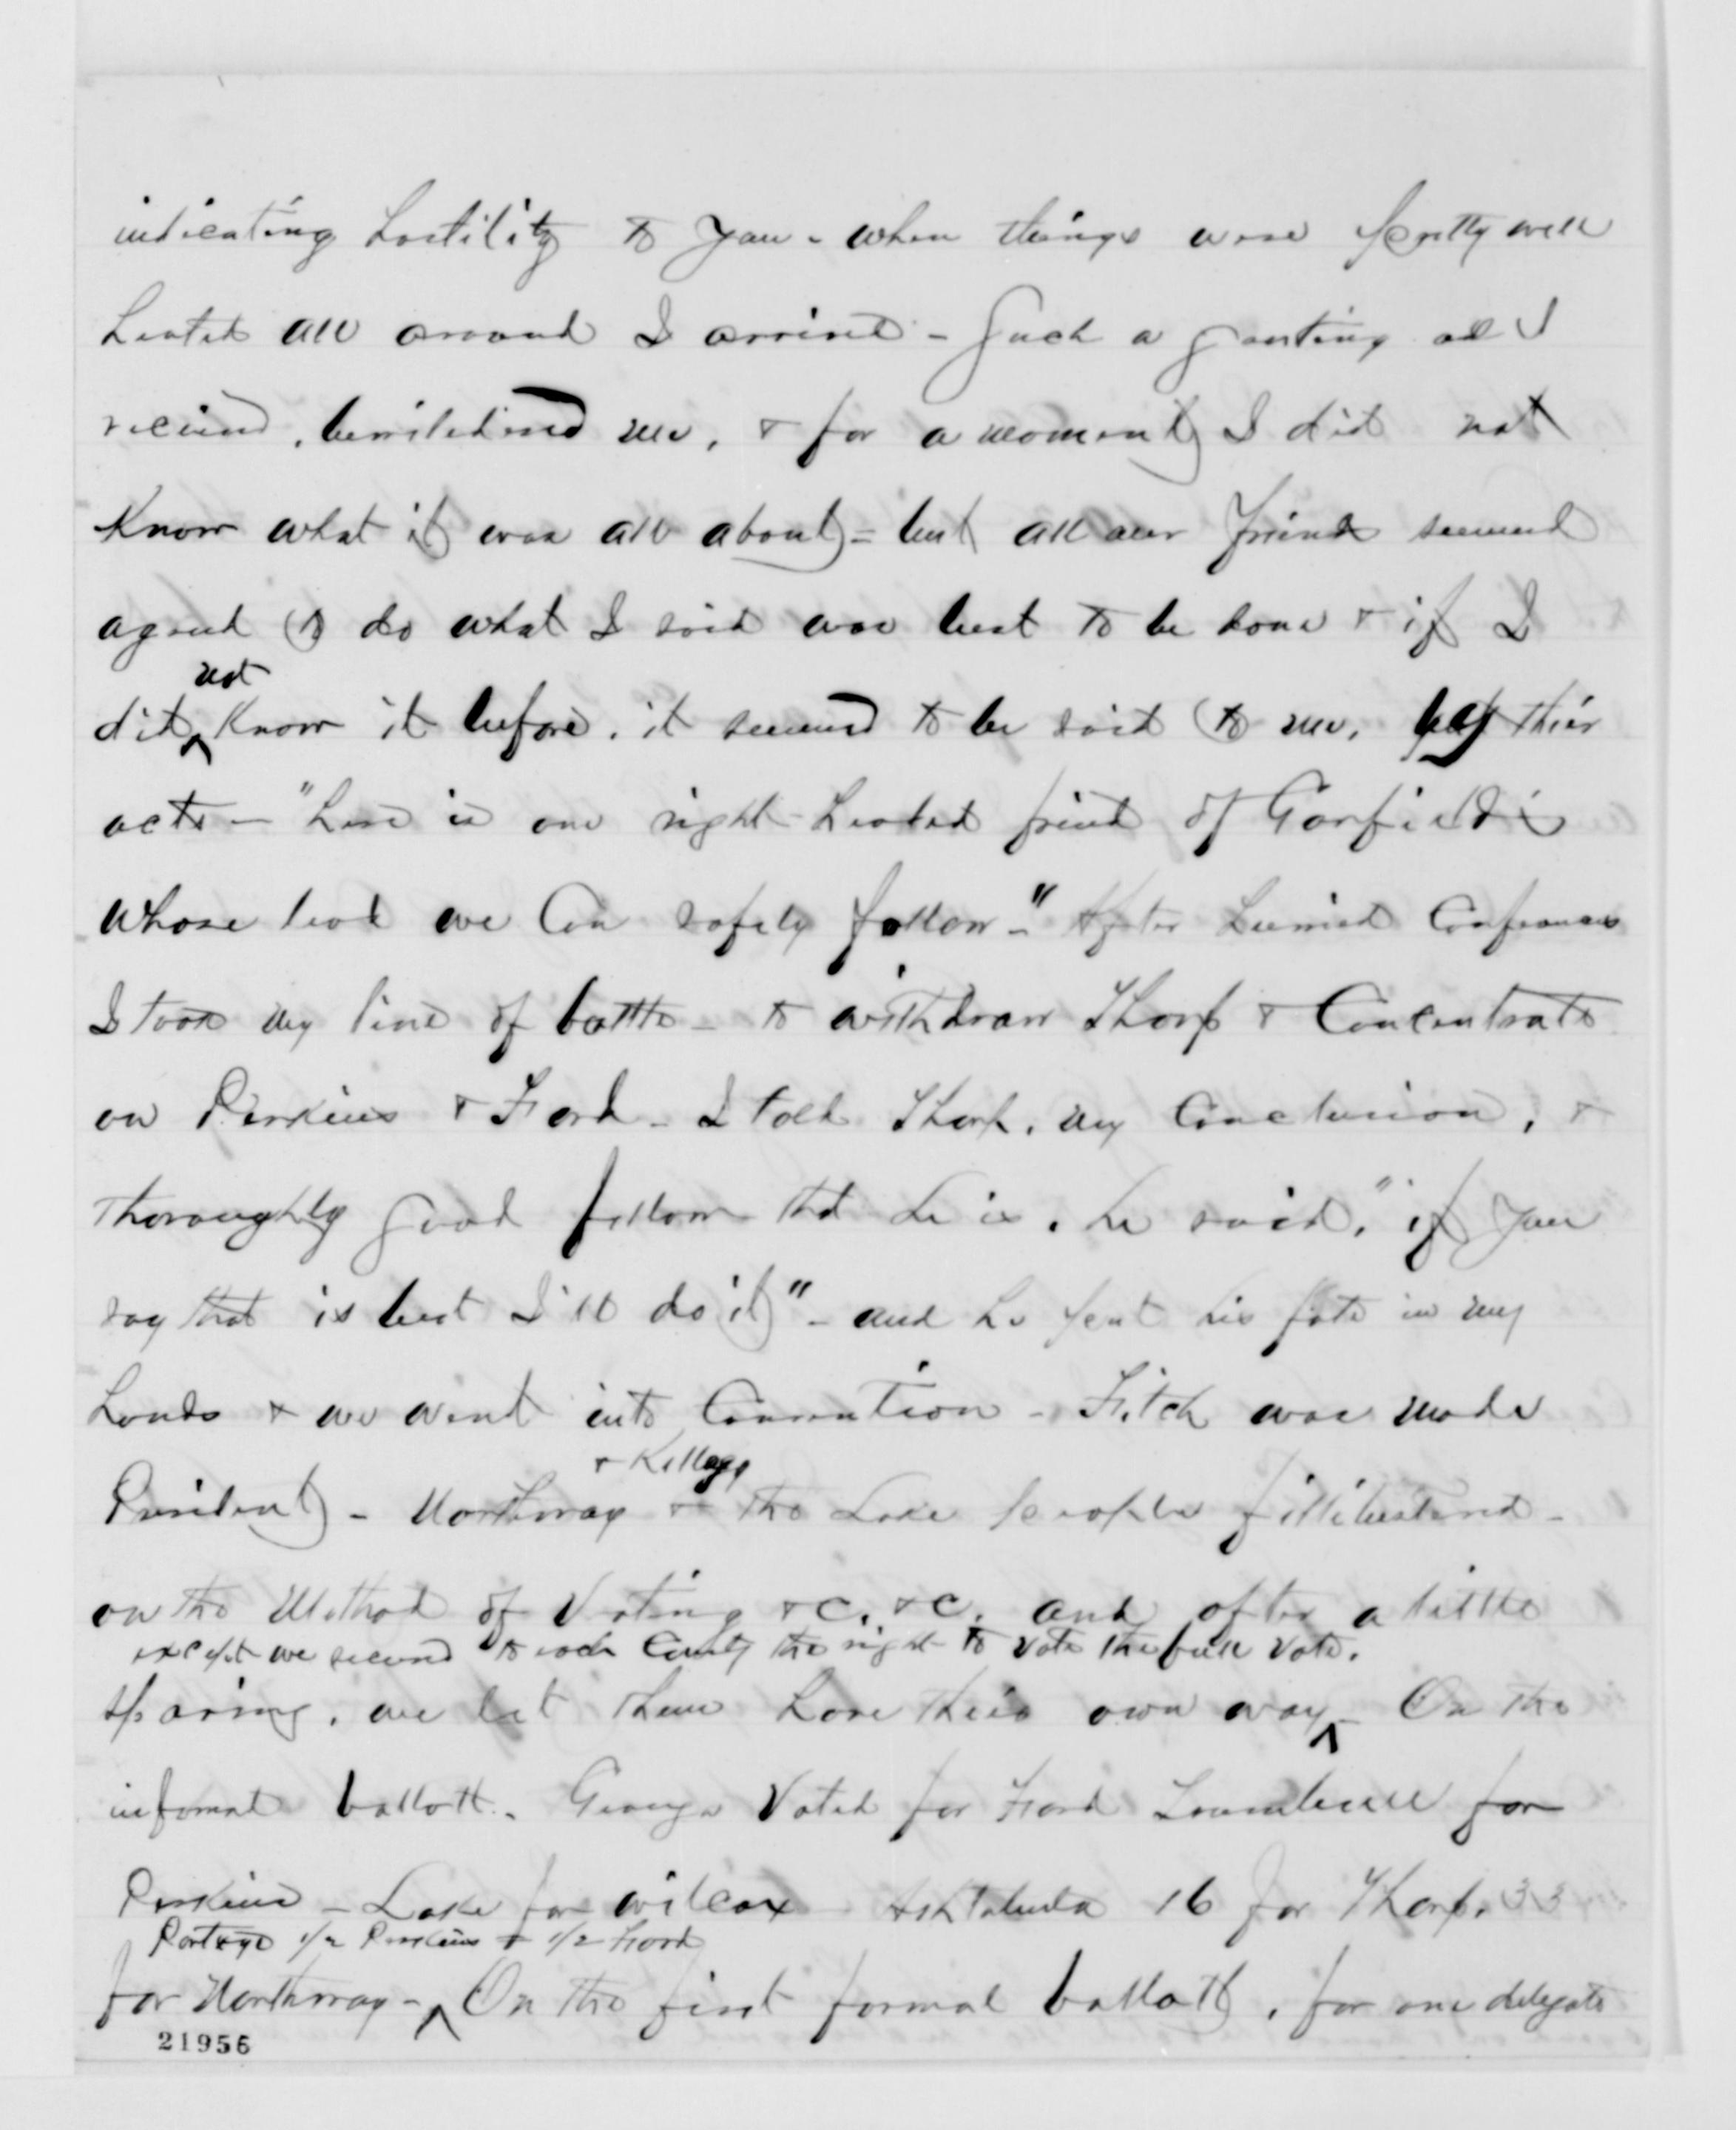 indicating hostility to you - when things were pretty well
heated all around I arrived - Such a greeting as I
recieved, bewildered me, & for a moment I did not
Know what it was all about - but all our friends seemed
agreed to do what I said was best to be done & if I
not
did ^ Know it before, it seemed to be said to me, by their
acts - "here is one right-hearted friend of Garfield's
whose lead we can safely follow -" After hurried Conferences
I took my line of battle - to withdraw Thorp & Concentrate
on Perkins & Ford - I told Thorp, my Conclusion, &
thoroughly good fellow that he is, he said, "if you
say that is best I'll do it" - and he put his fate in my
hands & we went into Convention - Fitch was made
& Kellogg
President - Northway & the Lake people fillibustered -
on the Method of Voting &c, &c, and after a little
except we secured to each County the right to Vote the full Vote.
sparing, we let them have their own way ^ - On the
informal ballott - Geauga Voted for Ford Trumbull for
Perkins - Lake for Wilcox Ashtabula 16 for Thorp, 33
Portage 1/2 Perkins & 1/2 Ford
for Northway - ^ On the first formal ballott, for one delegate
21956